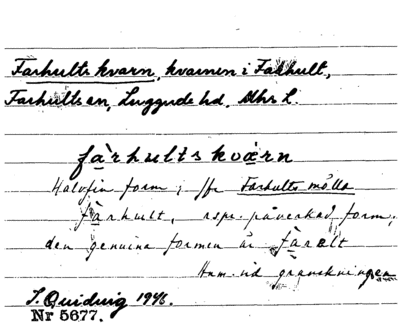 Farhults kvarn, kvarnen i Farhult,
Farhults sn, Luggude hd. Mhs l.
fàrhultskvarn
Halvfin form; jfr Farhults mölla
fàrhult, resp. påverkad form;
den genuina formen är fàralt
Anm. vid granskningen
I. Quiding 1946.
Nr 5677.